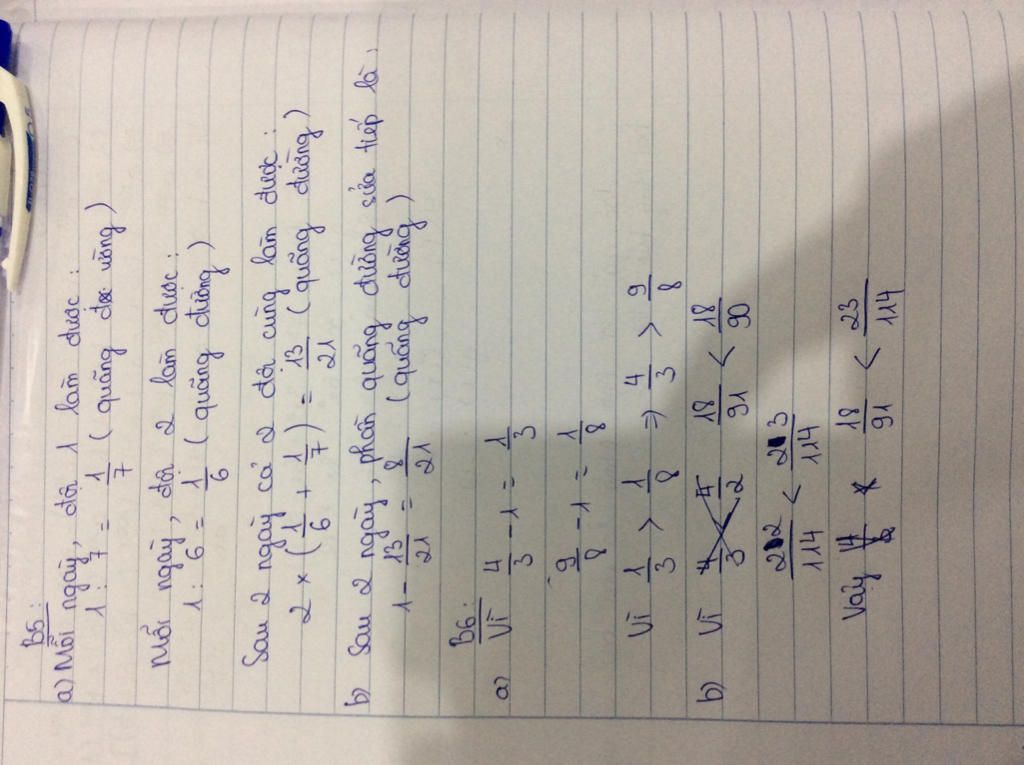 B5:
a) Mỗi ngày, đội 1 làm được:
1 : 7 = 1/7 (quãng đường)
Mỗi ngày, đội 2 làm được:
1 : 6 = 1/6 (quãng đường)
Sau 2 ngày cả 2 đội cùng làm được:
2 × (1/6 + 1/7) = 13/21 (quãng đường)
b) Sau 2 ngày, phần quãng đường sửa tiếp là:
1 - 13/21 = 8/21 (quãng đường)
B6:
a) Vì 4/3 - 1 = 1/3
9/8 - 1 = 1/8
Vì 1/3 > 1/8 => 4/3 > 9/8
b) Vì 18/91 < 18/90
22/114 < 23/114
Vậy 18/91 < 23/114